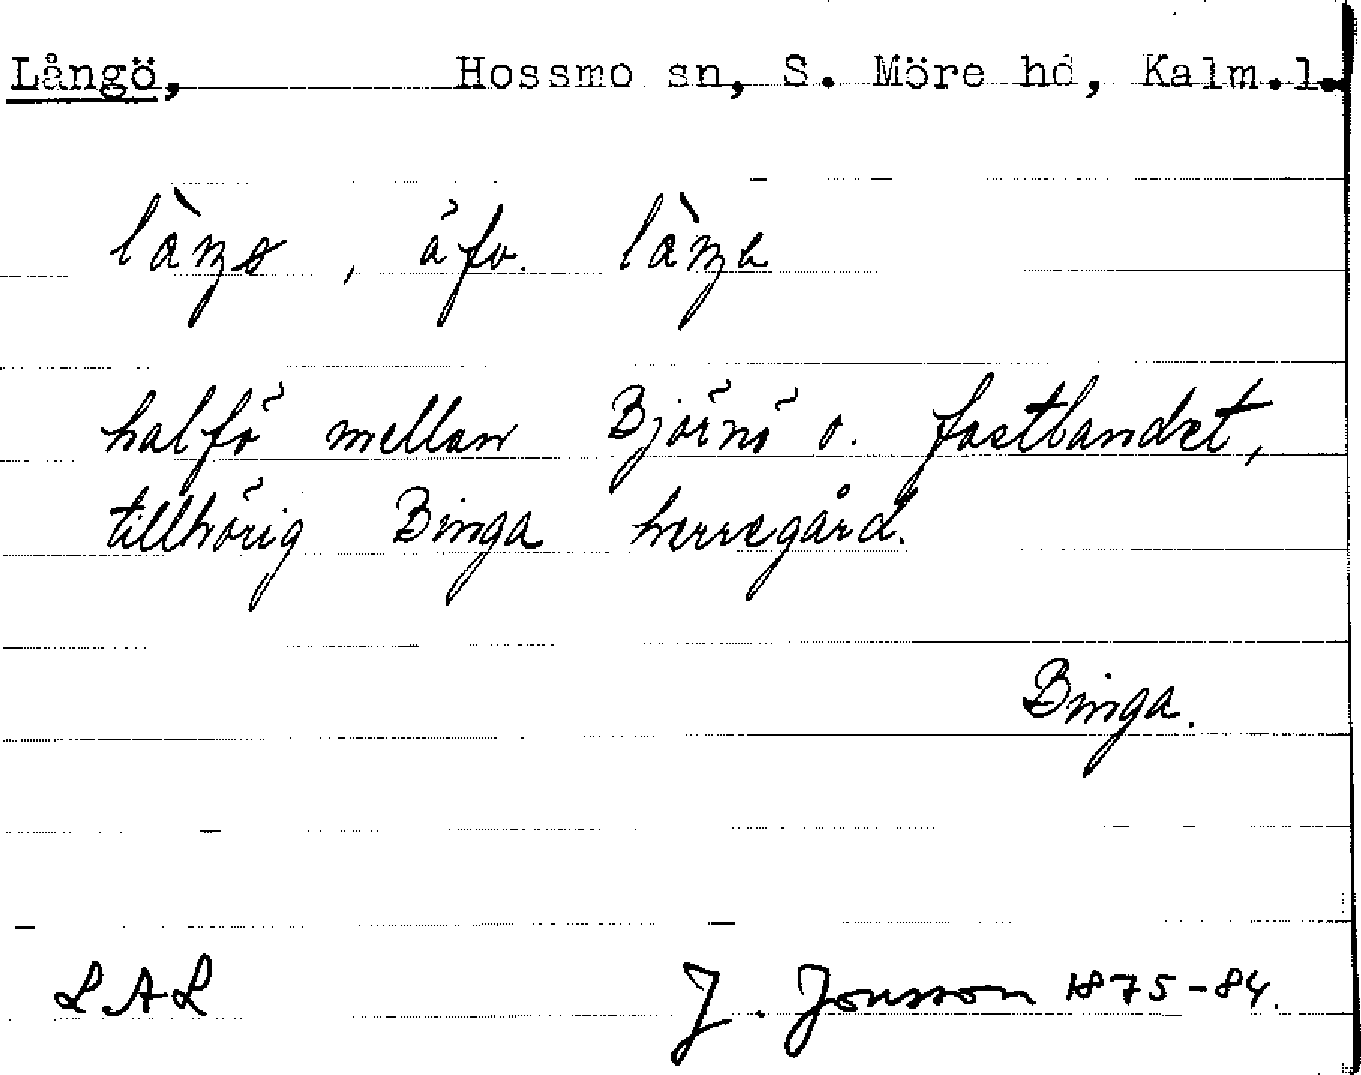 Långö, Hossmo sn, S. Möre hd, Kalm.l.
, äfv.
halfö mellan Björnö o. fastlandet,
tillhörig Binga herregård.
Binga.
LAL J. Jonsson 1875-84.